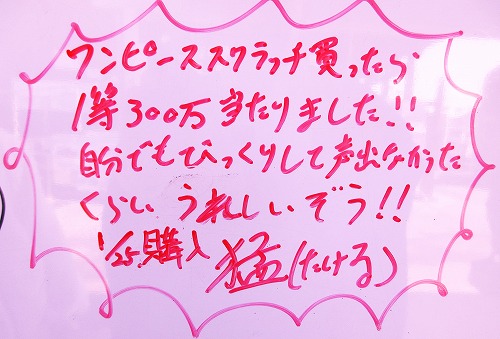 ワンピーススクラッチ買ったら
1等300万当たりました!!
自分でもびっくりして声出なかった
くらい うれしいぞう!!
1/25購入 猛(たける)